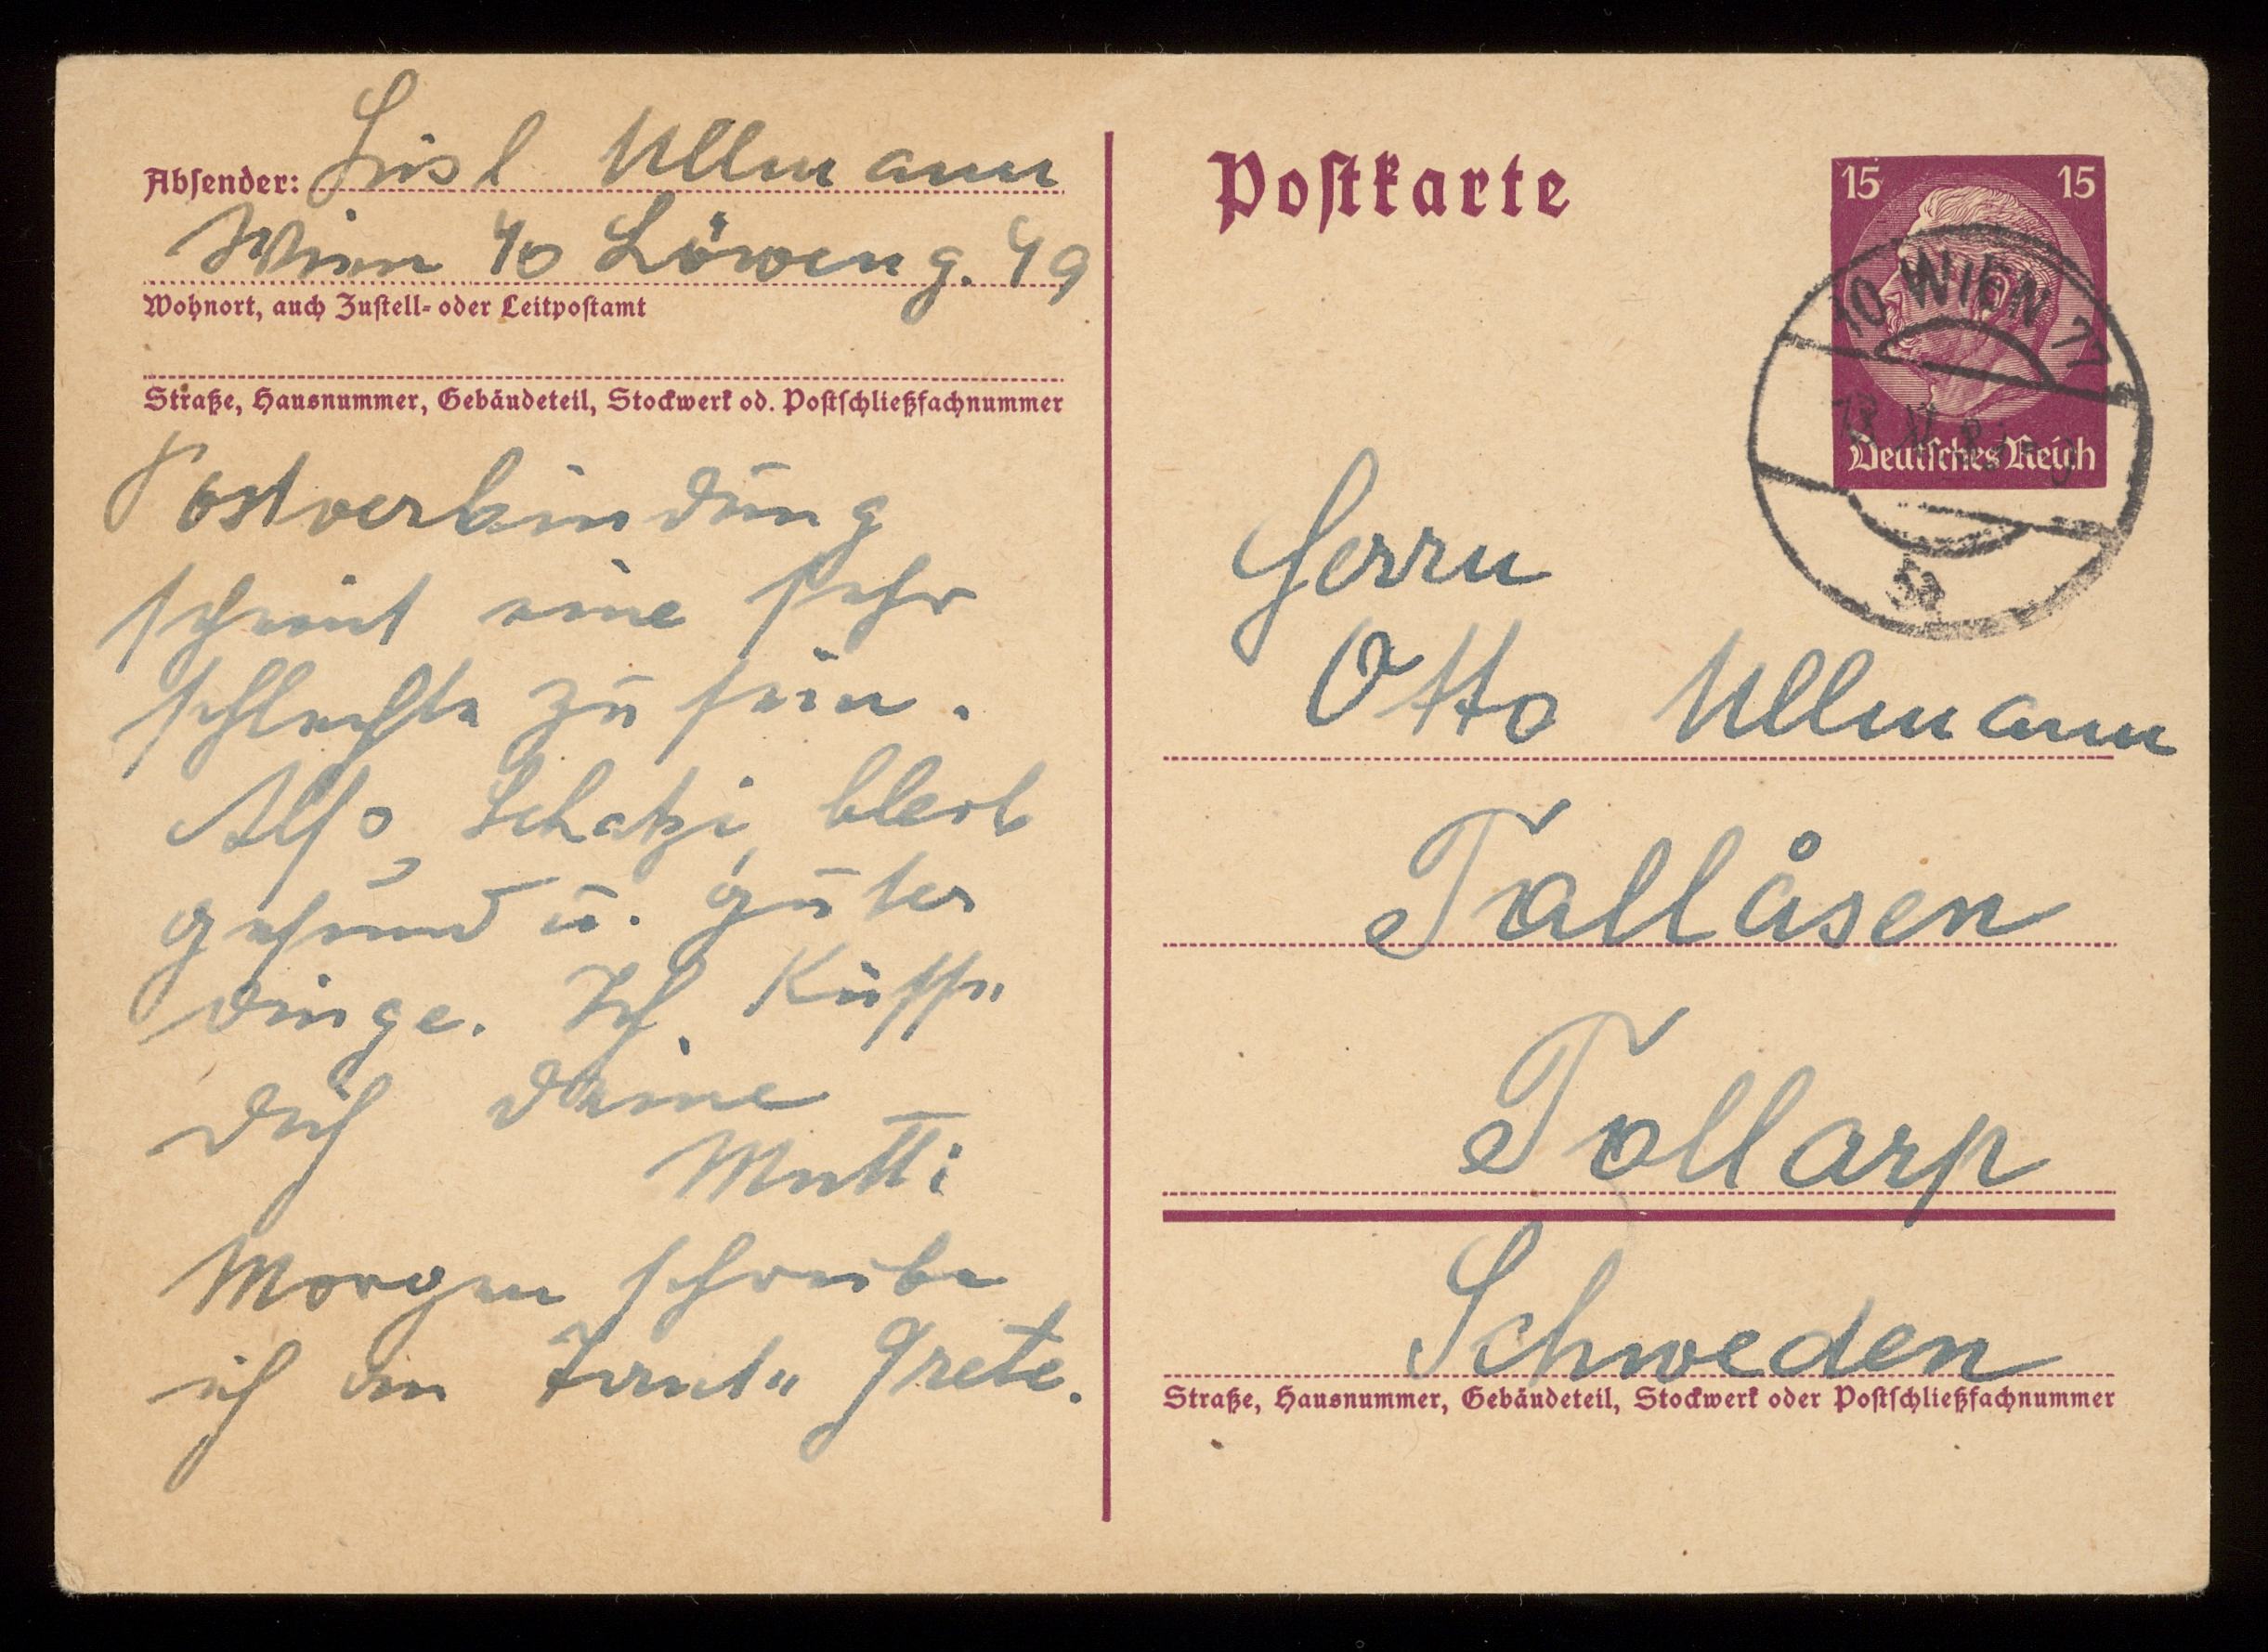 Absender: Lisl Ullmann
Wien 40 Löweng. 49
Wohnort, auch Zustell- oder Leitpostamt
Straße, Hausnummer, Gebäudeteil, Stockwerk od. Postschließfachnummer
Postverbindung
scheint eine sehr
schlechte zu sein.
Also, Schatzi, bleib
gesund u. guter
Dinge. Ich küsse
Dich Deine
Mutti
Morgen schreibe
ich an Tante Grete.
Postkarte
15 15
Deutsches Reich
10 WIEN 77
Herrn
Otto Ullmann
Tallåsen
Tollarp
Schweden
Straße, Hausnummer, Gebäudeteil, Stockwerk oder Postschließfachnummer